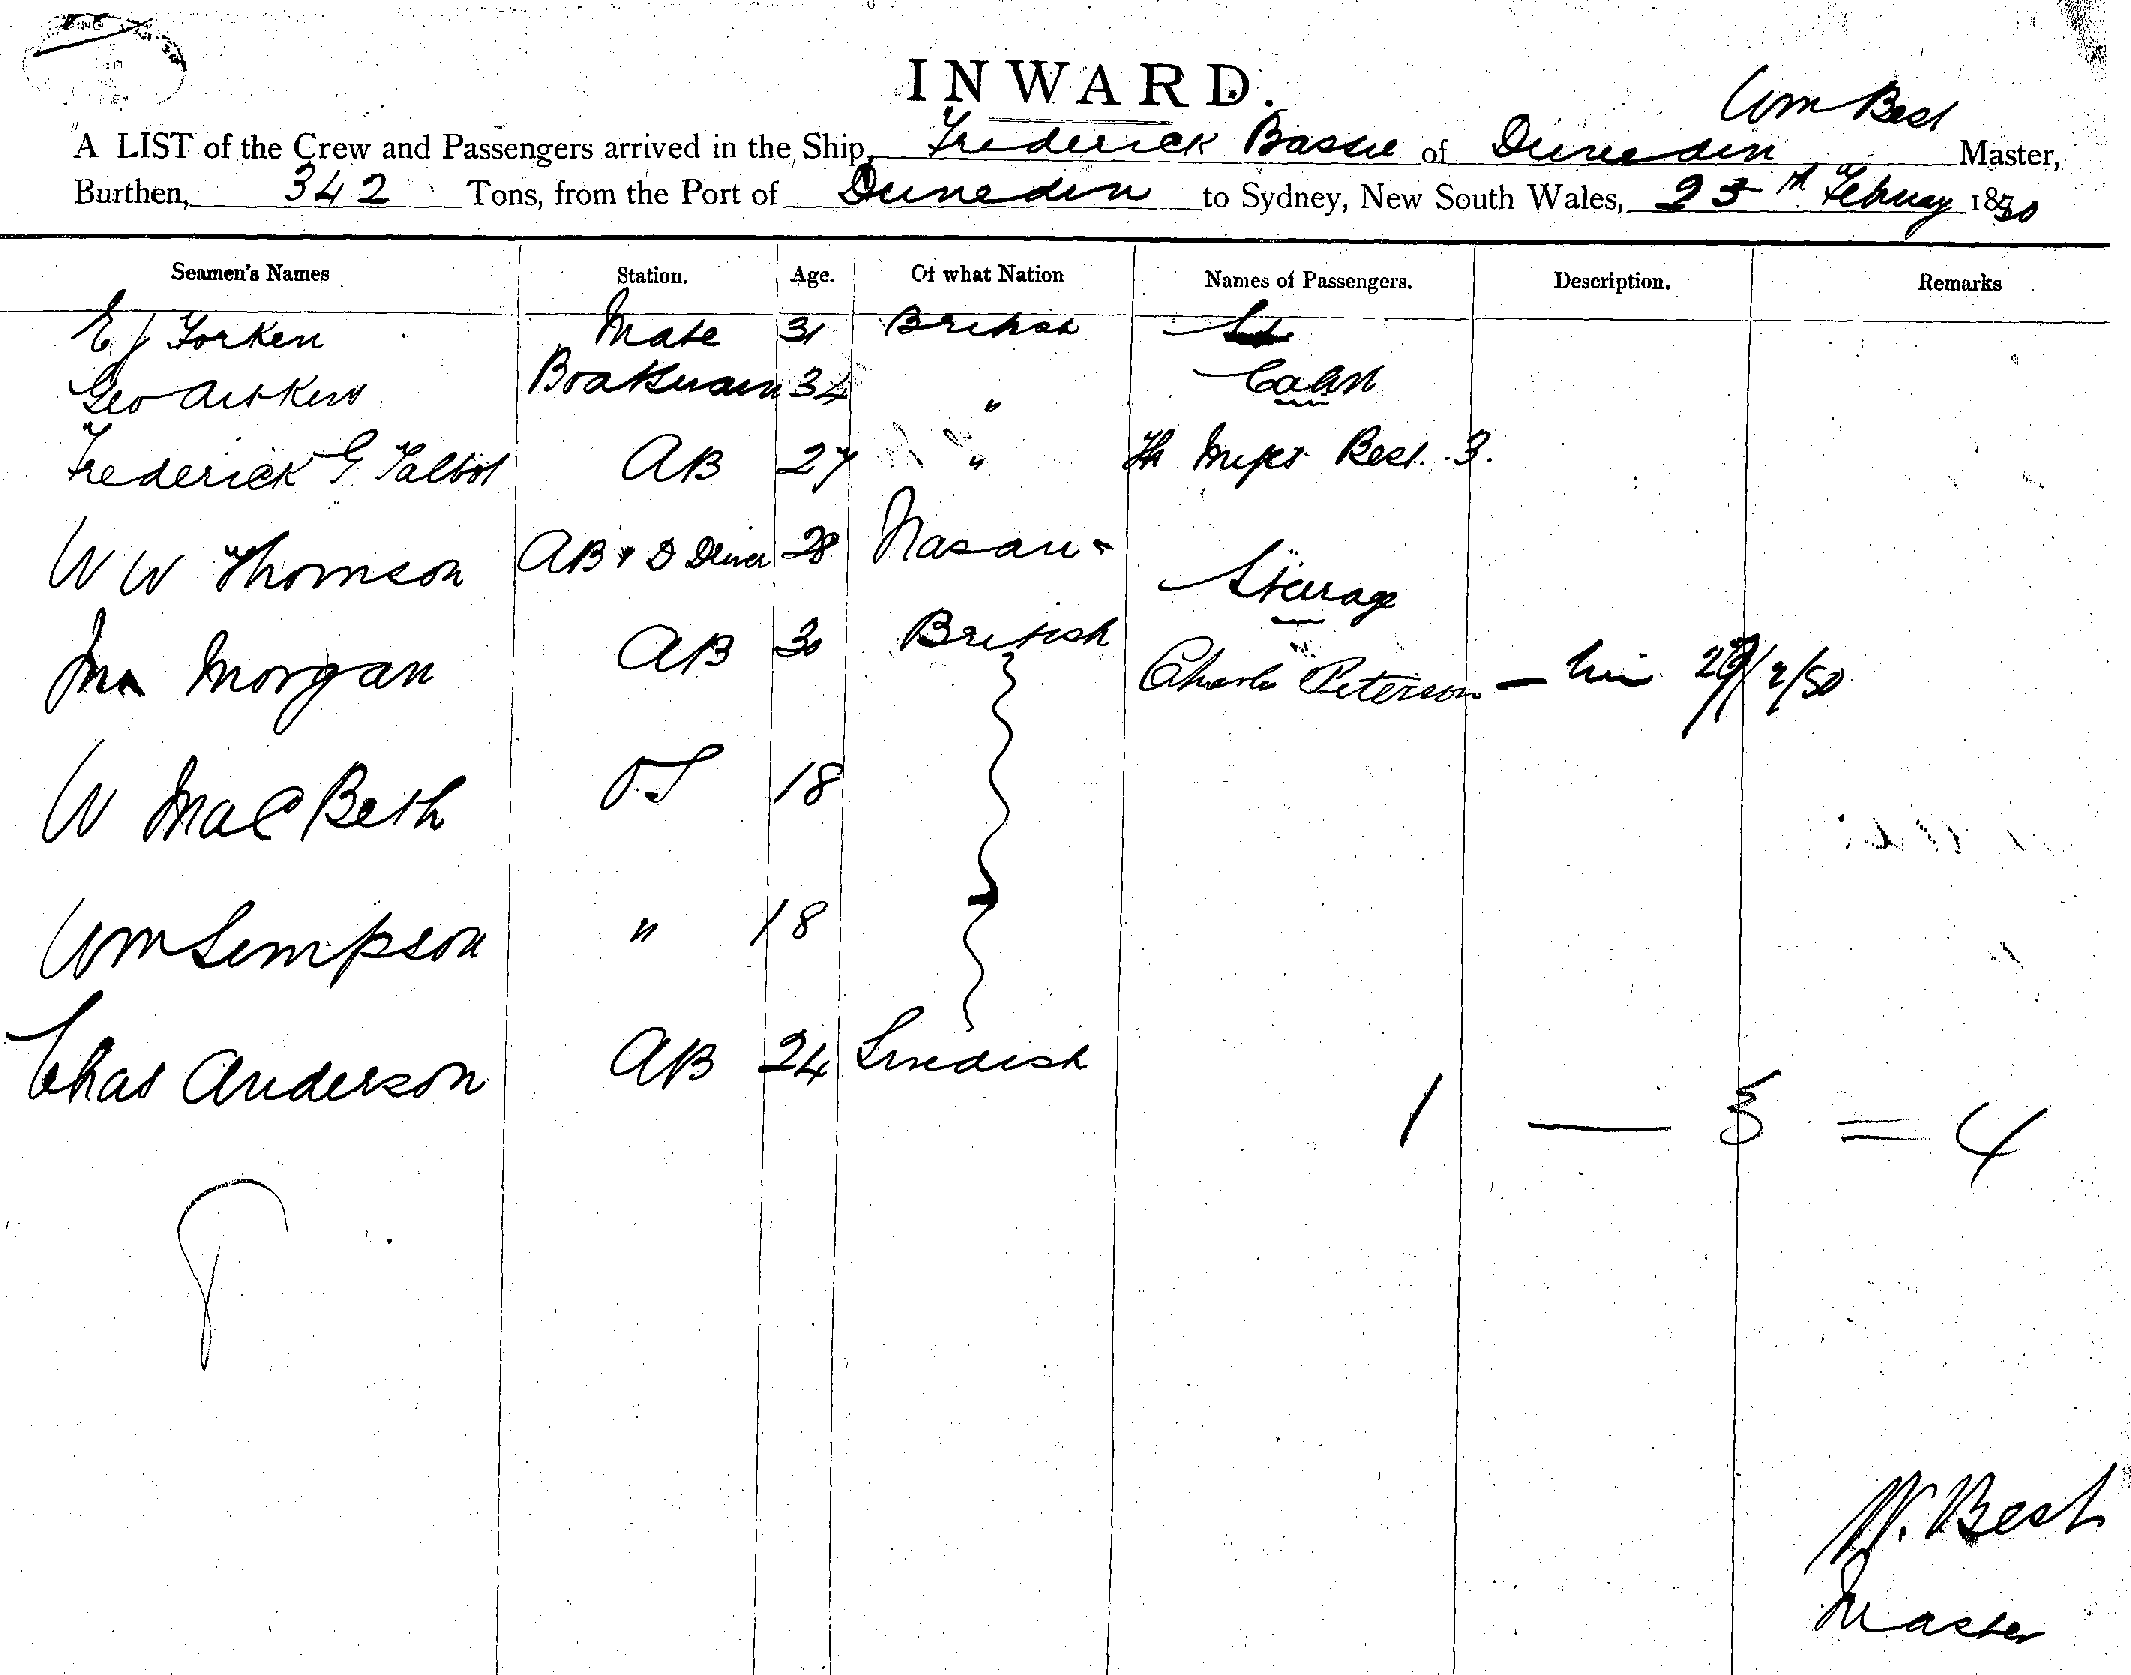 INWARD.
Wm Best
A LIST of the Crew and Passengers arrived in the Ship, Frederick Basse of Dunedin Master,
Burthen, 342 Tons, from the Port of Dunedin to Sydney, New South Wales, 25th February 18
Seamen's Names Station. Age. Of what Nation Names of Passengers. Description. Remarks
E J Yorken Mate 31 British
Geo Aitken 34 " Cabin
Frederick G Talbot AB 27 " Best. 3.
W W Thomson AB 28
Steerage
Morgan AB 30 British
Charles Peterson —
W MacBeth O.S 18
Wm Simpson " 18
Chas Anderson AB 24 Swedish
1 — 3 = 4
8
W. Best
Master